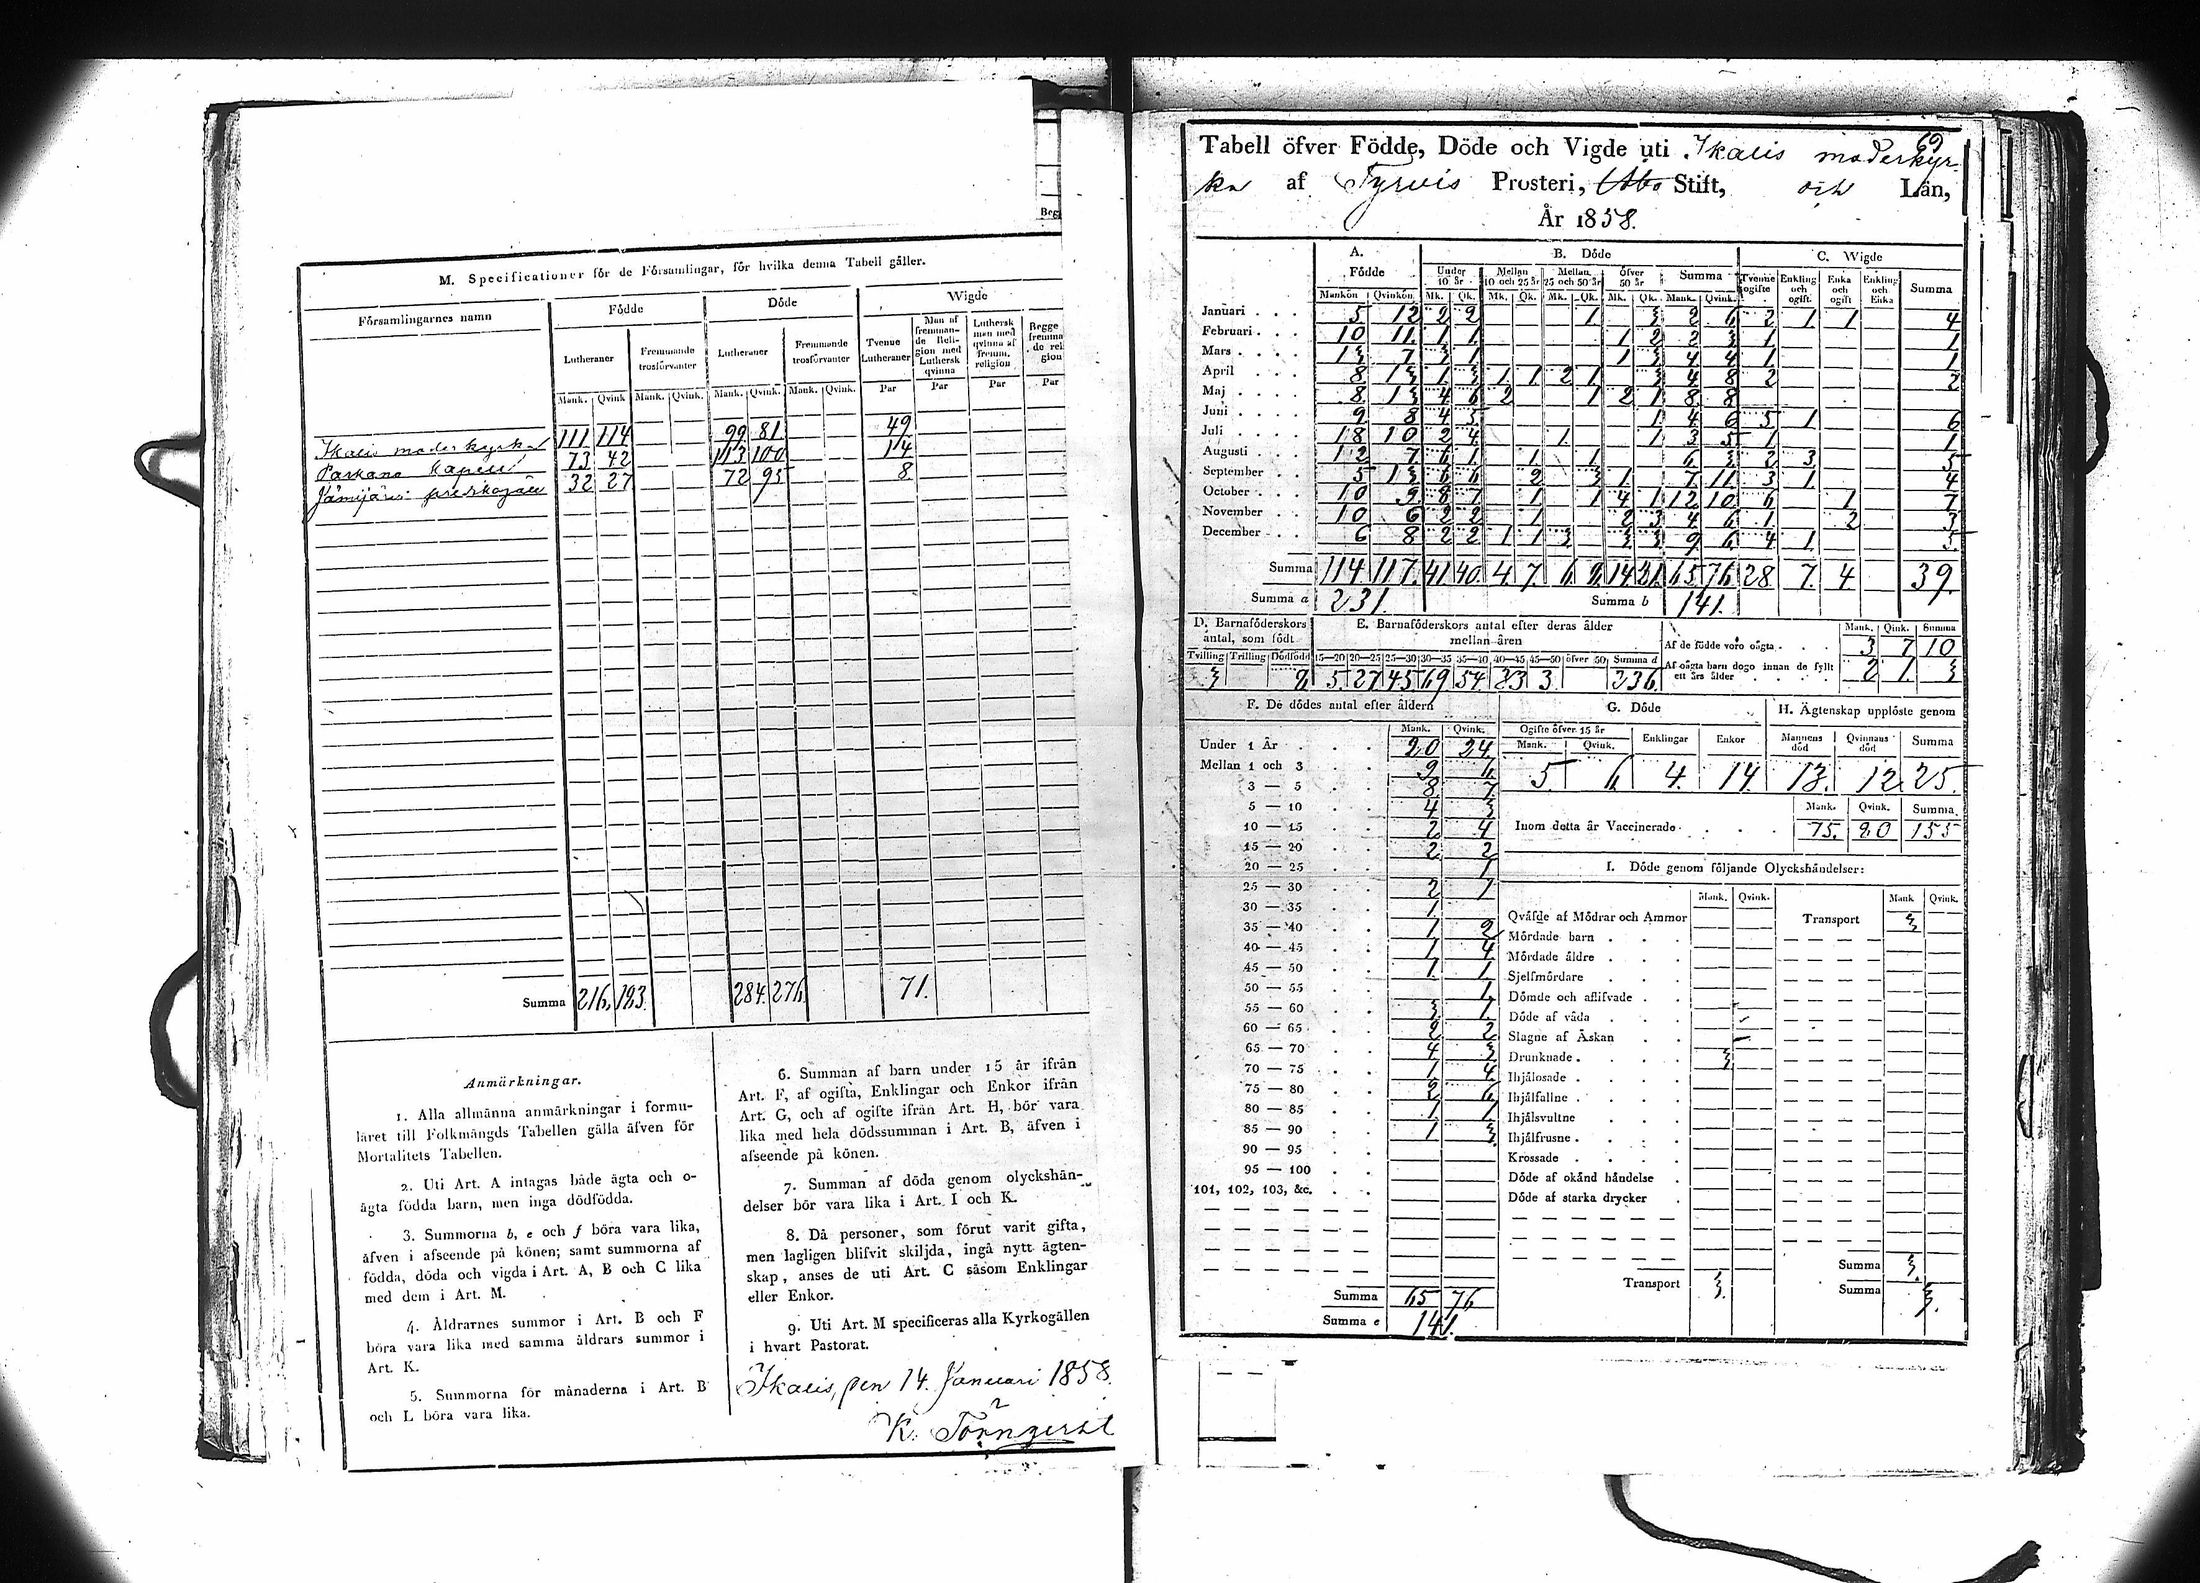 M. Specificationer för de Församlingar, för hvilka denna Tabell gäller.
Församlingarnes namn
Födde
Döde
Wigde
Lutheraner
Fremmande trosförvanter
Lutheraner
Fremmande trosförvanter
Tvenne Lutheraner
Man af fremmande Religion med Luthersk qvinna
Luthersk man med qvinna af fremm. religion
Begge fremma de reli gion
Mank. Qvink Mank. Qvink. Mank. Qvink. Mank. Qvink. Par Par Par Par
Ikalis moderkyrka 111 114 99 81 49
Parkano kapell 73 42 113 100 14
Jämijärvi 32 27 72 95 8
Summa 216 183 284 276 71.
Anmärkningar.
1. Alla allmänna anmärkningar i formu-
läret till Folkmängds Tabellen gälla äfven för
Mortalitets Tabellen.
2. Uti Art. A intagas både ägta och o-
ägta födda barn, men inga dödfödda.
3. Summorna b, e och f böra vara lika,
äfven i afseende på könen; samt summorna af
födda, döda och vigda i Art. A, B och C lika
med dem i Art. M.
4. Åldrarnes summor i Art. B och F
böra vara lika med samma åldrars summor i
Art. K.
5. Summorna för månaderna i Art. B
och L böra vara lika.
6. Summan af barn under 15 år ifrån
Art. F, af ogifta, Enklingar och Enkor ifrån
Art. G, och af ogifte ifrån Art. H, bör vara
lika med hela dödssumman i Art. B, äfven i
afseende på könen.
7. Summan af döda genom olyckshän-
delser bör vara lika i Art. I och K.
8. Då personer, som förut varit gifta,
men lagligen blifvit skiljda, ingå nytt ägten-
skap, anses de uti Art. C såsom Enklingar
eller Enkor.
9. Uti Art. M specificeras alla Kyrkogällen
i hvart Pastorat.
Ikalis, den 14. Januari 1858.
K. Törnqvist
69
Tabell öfver Födde, Döde och Vigde uti Ikalis moderkyr-
ka af Tyrvis Prosteri, Åbo Stift, och Län,
År 1858.
A. Födde
B. Döde
C. Wigde
Under 10 år
Mellan 10 och 25 år
Mellan 25 och 50 år
öfver 50 år
Summa
Tvenne ogifte
Enkling och ogift
Enka och ogift
Enkling och Enka
Summa
Mankön Qvinkön Mk. Qk. Mk. Qk. Mk. Qk. Mk. Qk. Mank. Qvink.
Januari 5 12 2 2 1 3 2 6 2 1 1 4
Februari 10 11 1 1 1 2 2 3 1 1
Mars 13 7 3 1 1 3 4 4 1 1
April 8 13 1 3 1 1 2 1 3 4 8 2 2
Maj 8 13 4 6 2 1 2 1 8 8
Juni 9 8 4 5 1 4 6 5 1 6
Juli 18 10 2 4 1 1 3 5 1 1
Augusti 12 7 6 1 1 1 6 3 2 3 5
September 5 13 6 6 2 3 1 7 11 3 1 4
October 10 9 8 7 1 1 4 1 12 10 6 1 7
November 10 6 2 2 1 2 3 4 6 1 2 3
December 6 8 2 2 1 1 3 3 3 9 6 4 1 5
Summa 114 117. 41. 40. 4. 7. 6 9. 14 21. 65 76 28 7. 4 39.
Summa a 231.
Summa b 141.
D. Barnaföderskors antal, som födt
E. Barnaföderskors antal efter deras ålder mellan åren
Tvilling Trilling Dödfödd 15—20 20—25 25—30 30—35 35—40 40—45 45—50 öfver 50 Summa d
3 8 5. 27 45 69 54 23 3. 236.
Mank. Qink. Summa
Af de födde voro oägta 3 7 10
Af oägta barn dogo innan de fyllt ett års ålder 2 1. 3
F. De dödes antal efter åldern
Mank. Qvink.
Under 1 År 20 24
Mellan 1 och 3 9 6
3 — 5 8 7
5 — 10 4 3
10 — 15 2 4
15 — 20 2 2
20 — 25 1
25 — 30 2 1
30 — 35 1
35 — 40 1 2
40 — 45 1 4
45 — 50 1 1
50 — 55 1
55 — 60 3 1
60 — 65 2 2
65 — 70 4 3
70 — 75 1 4
75 — 80 2 6
80 — 85 1 1
85 — 90 1 3
90 — 95
95 — 100
101, 102, 103, &c.
Summa 65 76
Summa e 141.
G. Döde
Ogifte öfver 15 år
Mank. Qvink.
Enklingar Enkor
5 6 4. 14.
H. Ägtenskap upplöste genom
Mannens död Qvinnans död Summa
13. 12 25.
Mank. Qvink. Summa
Inom detta år Vaccinerade 75. 80 155
I. Döde genom följande Olyckshändelser:
Mank. Qvink. Mank Qvink.
Qväfde af Mödrar och Ammor
Mördade barn
Mördade äldre
Sjelfmördare
Dömde och aflifvade
Döde af våda
Slagne af Åskan
Drunknade 3
Ihjälosade
Ihjälfallne
Ihjälsvultne
Ihjälfrusne
Krossade
Döde af okänd händelse
Döde af starka drycker
Transport 3.
Transport 3
Summa 3.
Summa 3.